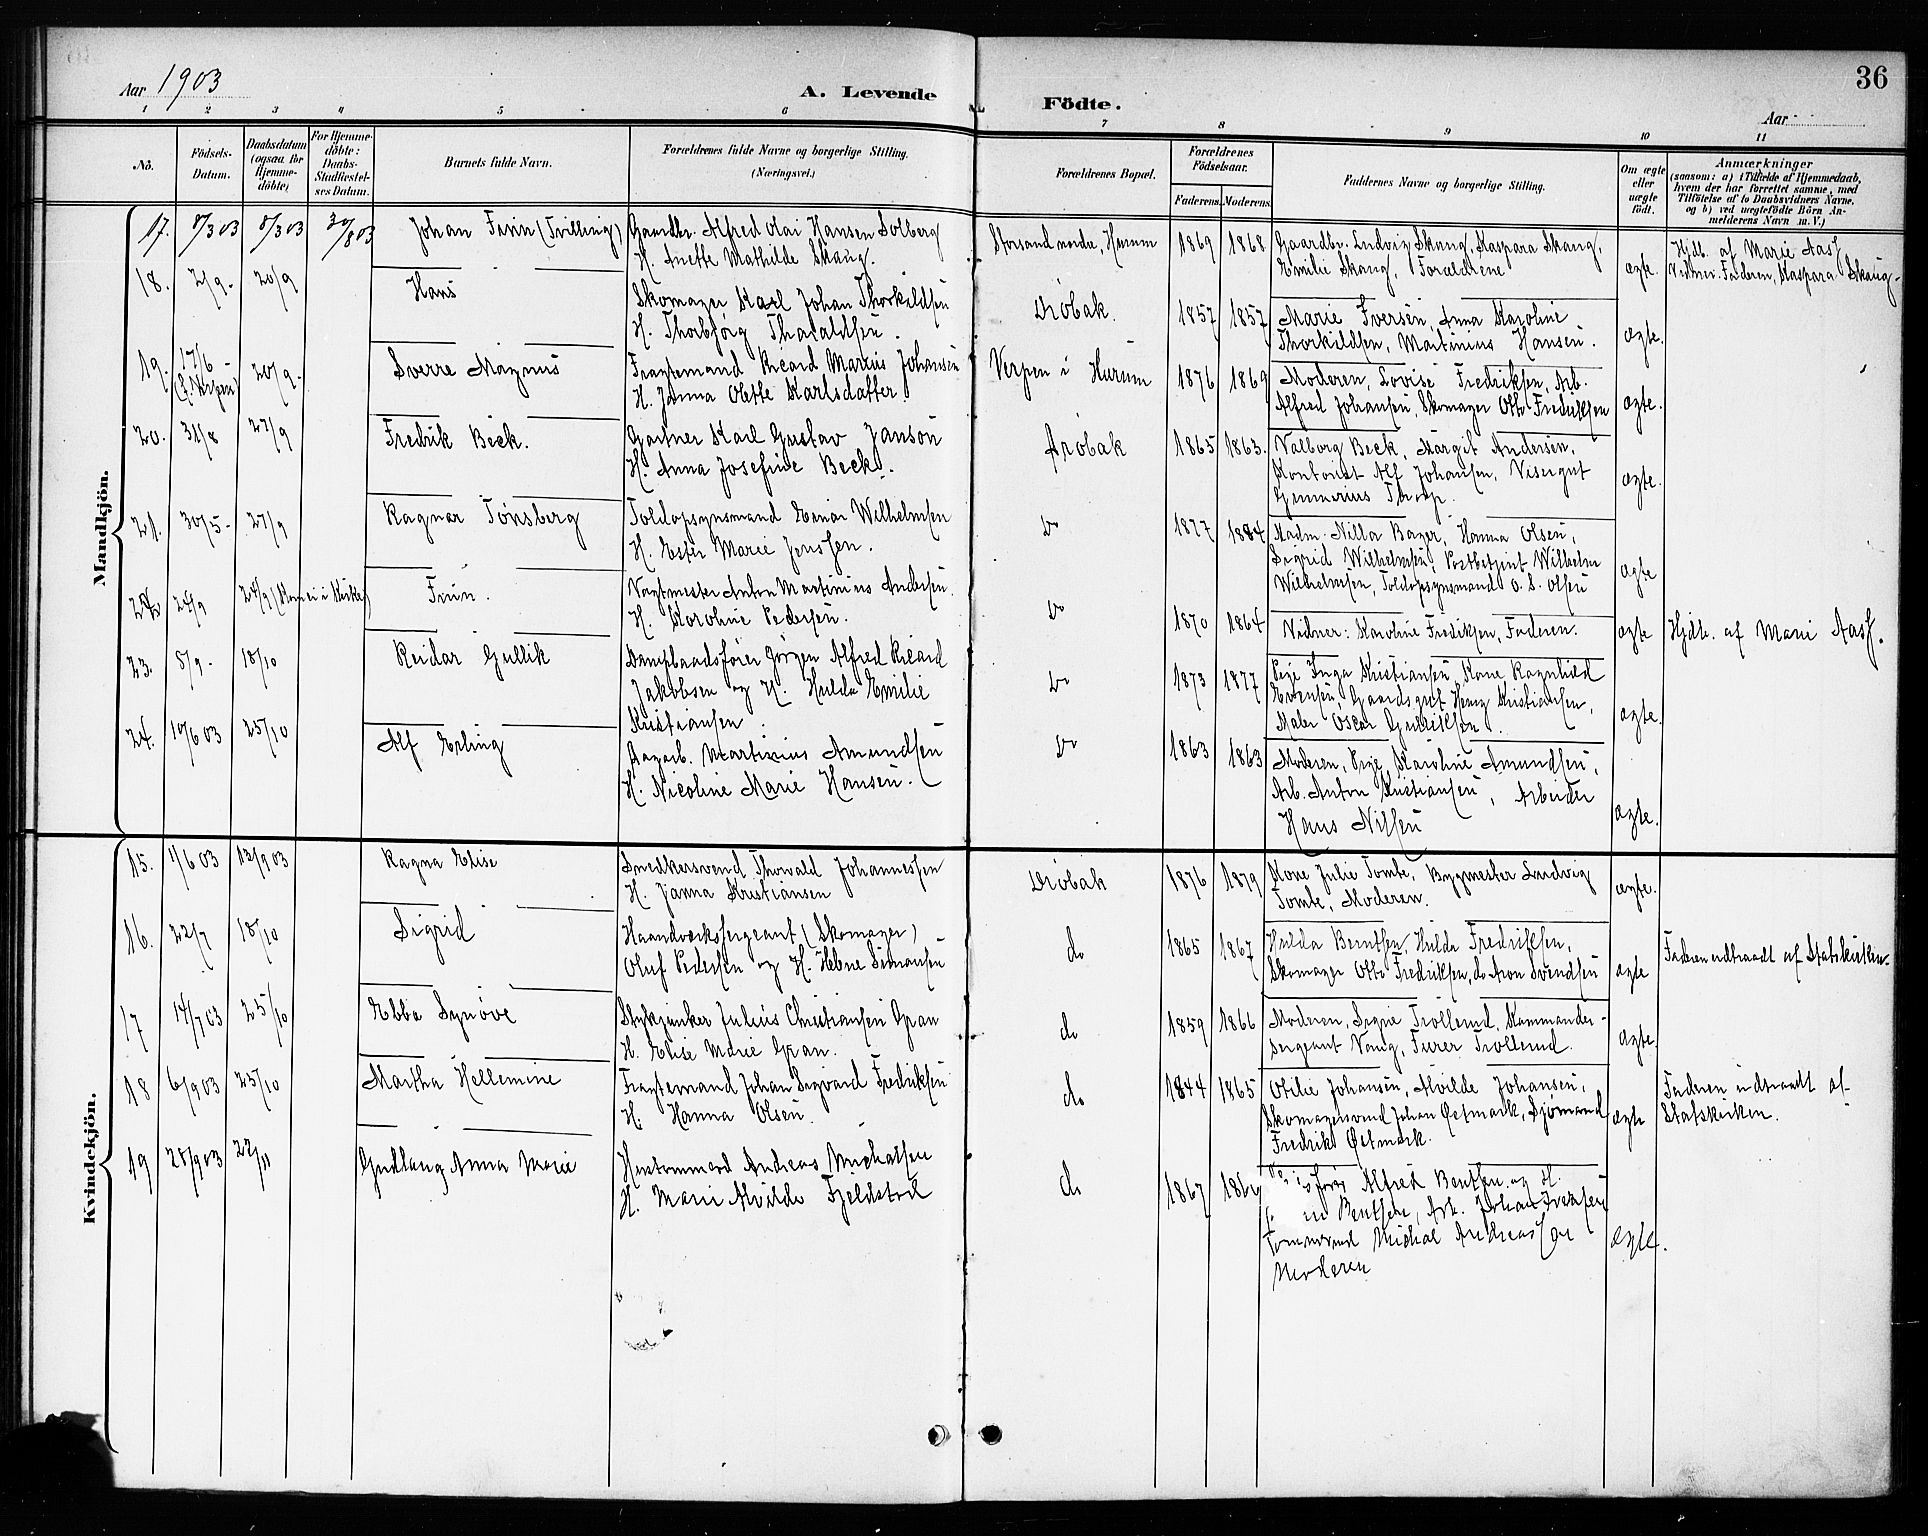 36
Aar 1903
A. Levende Födte.
Aar
1 2 3 4 5 6 7 8 9 10 11
No.
Födsels-Datum.
Daabsdatum (ogsaa for Hjemme-döbte)
For Hjemme-döbte: Daabs-Stadfæstel-ses Datum.
Barnets fulde Navn.
Forældrenes fulde Navne og borgerlige Stilling. (Næringsvei.)
Forældrenes Bopæl.
Forældrenes Fødselsaar.
Faderens. Moderens.
Faddernes Navne og borgerlige Stilling.
Om ægte eller uægte født.
Anmærkninger
(saasom: a) i Tilfælde af Hjemmedaab, hvem der har forrettet samme, med Tilföielse af to Daabsvidners Navne, og b) ved uægtefödte Börn An-melderens Navn m. V.)
Mandkjön.
17. 8/3 03 8/3 03 30/8 03 Johan Finn (Tvilling) Gaardbr. Alfred Olai Hansen Solberg
H. Anette Mathilde Skaug.
Storsand nordre, Hurum 1869 1868 Gaardbr. Ludvig Skaug, Kaspara Skaug,
Emilie Skaug, Forældrene ægte.
Hjdb. af Marie Aass
Vidner: Faderen, Kaspara Skaug.
18. 2/9- 20/9 Hans Skomager Karl Johan Thorkildsen
H. Thorbjørg Tharaldsen.
Drøbak. 1857 1857 Marie Iversen, Anna Karoline
Thorkildsen, Martinius Hansen. ægte.
19. 17/6 20/9- Sverre Magnus Fragtemand Ricard Marius Johansen
H. Janna Olette Karlsdatter.
Verpen i Hurum 1876 1869 Moderen, Lovise Fredriksen, Arb.
Alfred Johansen, Skomager Otto Fredriksen ægte.
20. 31/8 27/9 Fredrik Beck. Gartner Karl Gustav Janson
H. Anna Josefine Beck.
Drøbak 1865 1863. Valborg Beck, Margit Andersen,
Kontorist Alf Johansen, Visergut
Thorp. ægte.
21. 30/5- 27/9 Ragnar Tønsberg Toldopsynsmand Einar Wilhelmsen
H. Ester Marie Jenssen.
Do 1877 1884 Madm. Nilla Bager, Hanna Olsen,
Sigrid Wilhelmsen, Postbetjent Wilhelm
Wilhelmsen, Toldopsynsmand O. S. Olsen ægte
22 24/9 24/9 (Kom ei i Kirke) Finn. Vagtmester Anton Martinius Andersen.
H. Karoline Pedersen.
Do 1870 1864 Vidner: Karoline Fredriksen, Faderen. ægte Hjdb. af Marie Aass.
23. 5/9- 18/10 Reidar Gullik Dampbaadsfører Jørgen Alfred Ricard
Jakobsen og H. Hulda Emilie
Kristiansen.
Do 1873 1877 Pige Inga Kristiansen, Kone Ragnhild
Evensen, Gaardsgut Henry Kristiansen,
Maler Oscar Gulliksen. ægte.
24. 10/6 03 25/10 Alf Erling Dagarb. Martinius Amundsen
H. Nicoline Marie Hansen.
Do 1863 1863 Moderen, Pige Karoline Amundsen,
Arb. Anton Kristiansen, Arbeider
Hans Nilsen ægte.
Kvindekjön.
15. 1/6 03 13/9 03 Ragna Elise Snedkersvend Thorvald Johannessen
H. Janna Kristiansen
Drøbak 1876 1879 Kone Julie Tombe, Bygmester Ludvig
Tombe, Moderen. ægte.
16. 22/7 18/10 Sigrid Haandværkssergeant (Skomager)
Oluf Pedersen og H. Helene Simonsen
do 1865 1867 Hulda Berntsen, Hulda Fredriksen,
Skomager Otto Fredriksen, do Aron Svendsen ægte
Faderen udtraadt af Statskirken.
17 14/7 03 25/10 Ebba Synøve Stykjunker Julius Christiansen Gran
H. Elise Marie Gran.
do 1859 1866 Moderen, Signe Trollerud, Kommander-
sergeant Vang, Furer Trollerud. ægte.
18 6/9 03 25/10 Martha Hellemine Fragtemand Johan Sigvard Fredriksen
H. Hanna Olsen.
do 1844 1865 Otilie Johansen, Alvilde Johansen,
Skomagersvend Johan Østmark, Sjømand
Fredrik Østmark. ægte
Faderen udtraadt af
Statskirken.
19 28/9 03 22/11 Gudlaug Anna Marie Andreas Michalsen
H. Marie Alvilde Fjeldstad
do 1867 Alfred Bentsen og H.
Bentsen, Arb. Johan Iversen
Tømmermand Michal Andreassen
Moderen ægte.